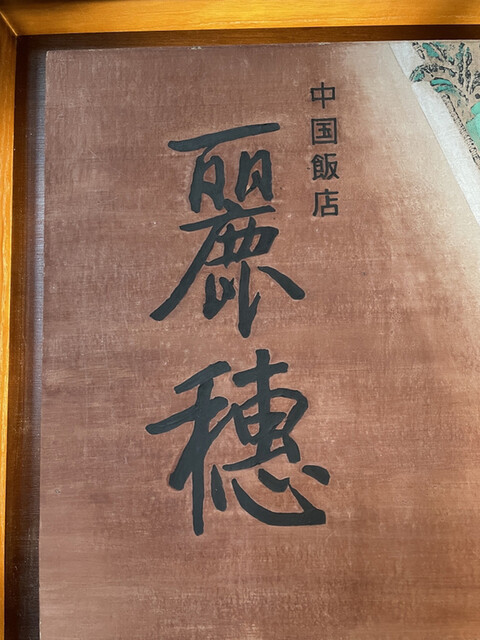 中国飯店
麗穂